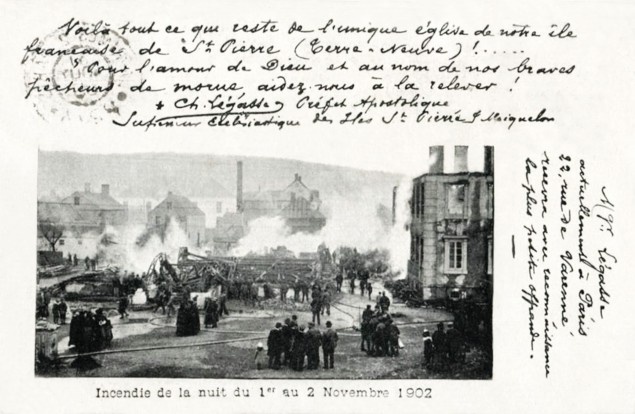 Voilà tout ce qui reste de l'unique église de notre île
française de St Pierre (Terre-Neuve) !.....
Pour l'amour de Dieu et au nom de nos braves
pêcheurs de morue aidez-nous à la relever !
+ Ch. Légasse, Préfet Apostolique
Supérieur Ecclésiastique des Iles St Pierre & Maiquelon
Mgr. Légasse
actuellement à Paris
22, rue de Varenne,
recevra avec reconnaissance
la plus petite offrande.
Incendie de la nuit du 1er au 2 Novembre 1902